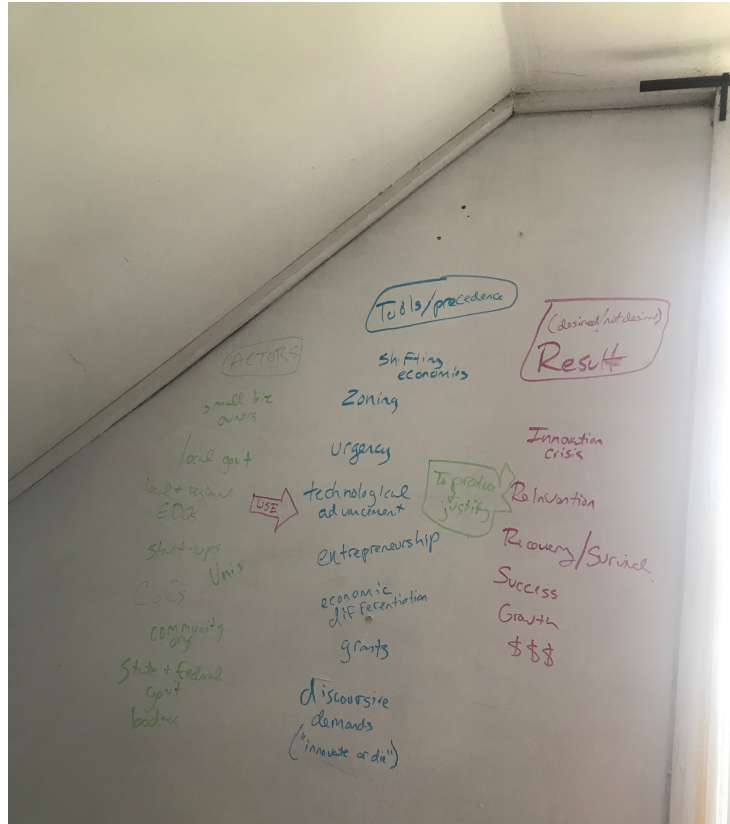 ACTORS
small biz
owners
local govt
local + regional
EDOs
Start-ups
Unis
CoCs
community
orgs
State + federal
govt
bodies
USE
Tools/precedence
Shifting
economies
Zoning
urgency
technological
advancement
entrepreneurship
economic
differentiation
grants
discoursive
demands
("innovate or die")
To
justify
(desired/not desired)
Result
Innovation
crisis
ReInvention
Recovery/Survival
Success
Growth
$$$